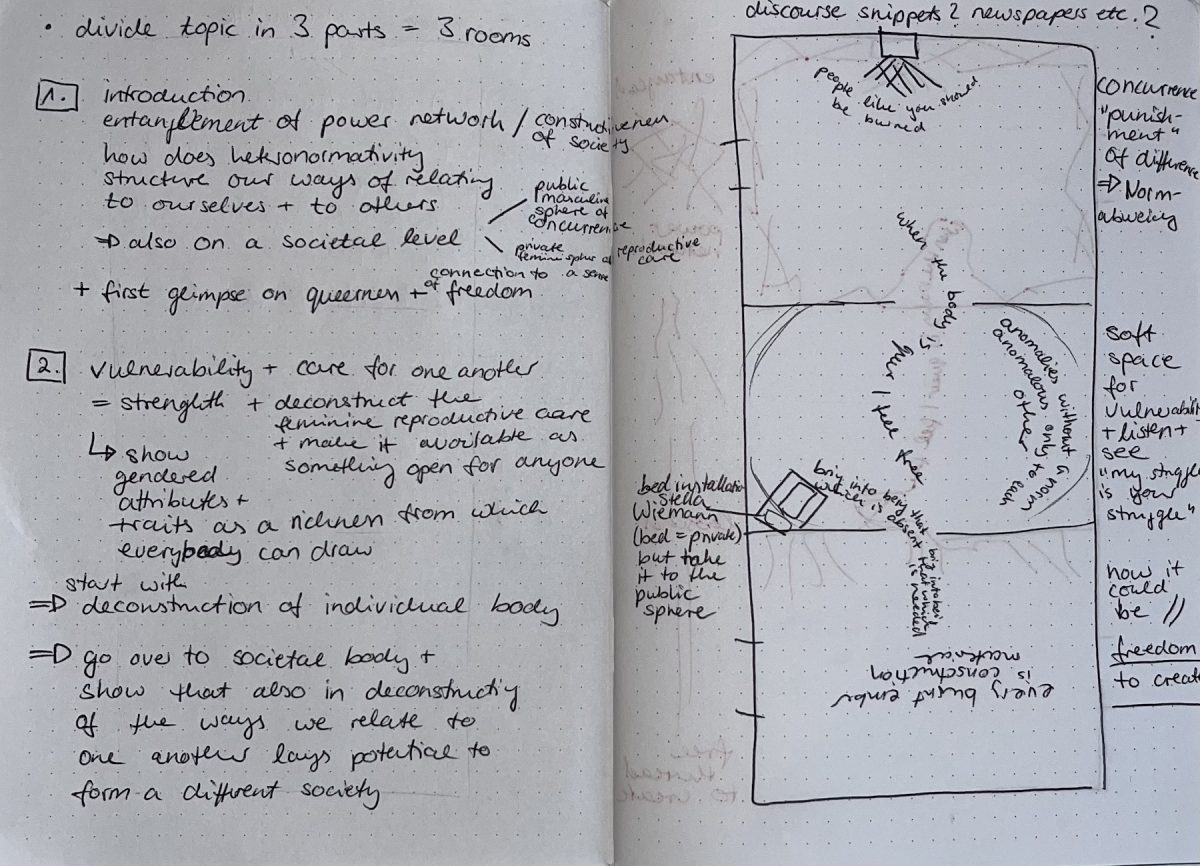 • divide topic in 3 parts = 3 rooms
1. introduction
entanglement of power network / constructiveness
of society
how does heteronormativity
structure our ways of relating
to ourselves + to others
⇒ also on a societal level
public
masculine
sphere of
concurrence
private
feminine sphere of reproductive
care
connection to a sense
+ first glimpse on queerness + of freedom
2. vulnerability + care for one another
= strenghth + deconstruct the
feminine reproductive care
+ make it available as
something open for anyone
↳ show
gendered
attributes +
traits as a richness from which
everybody can draw
start with
⇒ deconstruction of individual body
⇒ go over to societal body +
show that also in deconstructiy
of the ways we relate to
one another lays potential to
form a different society
discourse snippets? newspapers etc.?
people like you should
be burned
concurrence
"punish-
ment"
of difference
⇒ Norm-
abweig
when the body is
queer I feel free
anomalies without a norm
anomalous only to each
other
soft
space
for
vulnerabili
+ listen +
see
"my struggle
is your
struggle"
bed installation
Stella
Wiemann
(bed = private)
but take
it to the
public
sphere
brig into being that
which is absent
brig into beig
that which
is needed
how it
could
be //
freedom
to create
every burnt ember
is construction
material
entangled
power
free
thread
to create